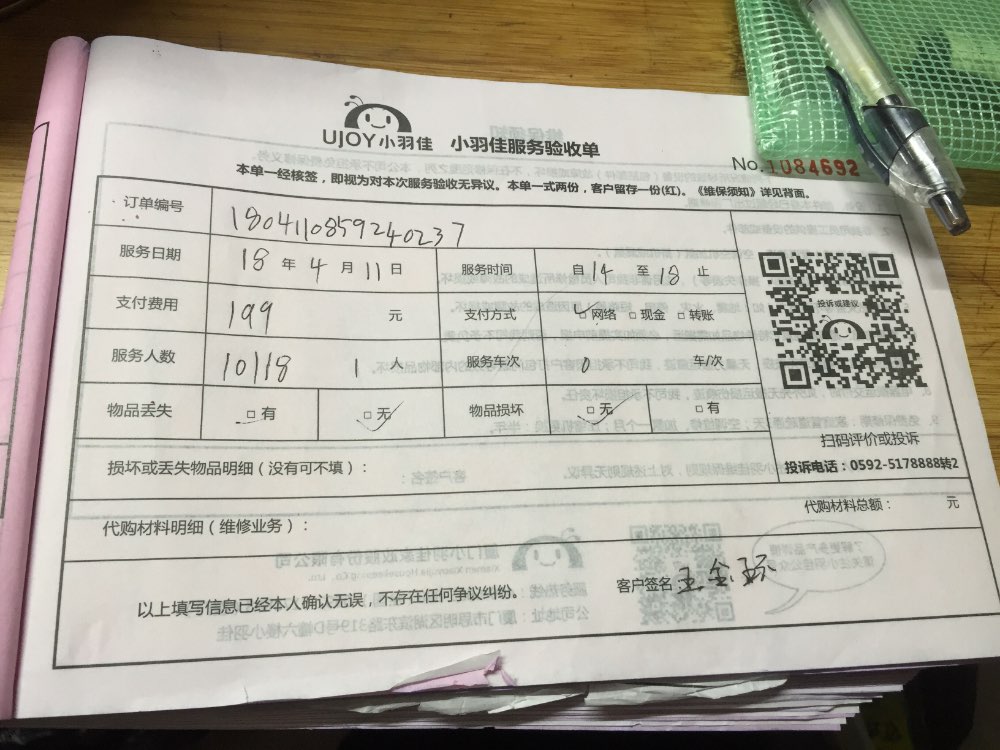 UJOY小羽佳 小羽佳服务验收单
No.1084692
本单一经核签，即视为对本次服务验收无异议。本单一式两份，客户留存一份(红)。《维保须知》详见背面。
订单编号 1804110859240237
服务日期 18 年 4 月 11 日 服务时间 自 14 至 18 止
支付费用 199 元 支付方式 □网络 □现金 □转账
服务人数 10118 1 人 服务车次 0 车/次
物品丢失 □有 □无 物品损坏 □无 □有
投诉或建议
扫码评价或投诉
投诉电话：0592-5178888转2
损坏或丢失物品明细（没有可不填）：
代购材料明细（维修业务）：
代购材料总额： 元
以上填写信息已经本人确认无误，不存在任何争议纠纷。
客户签名